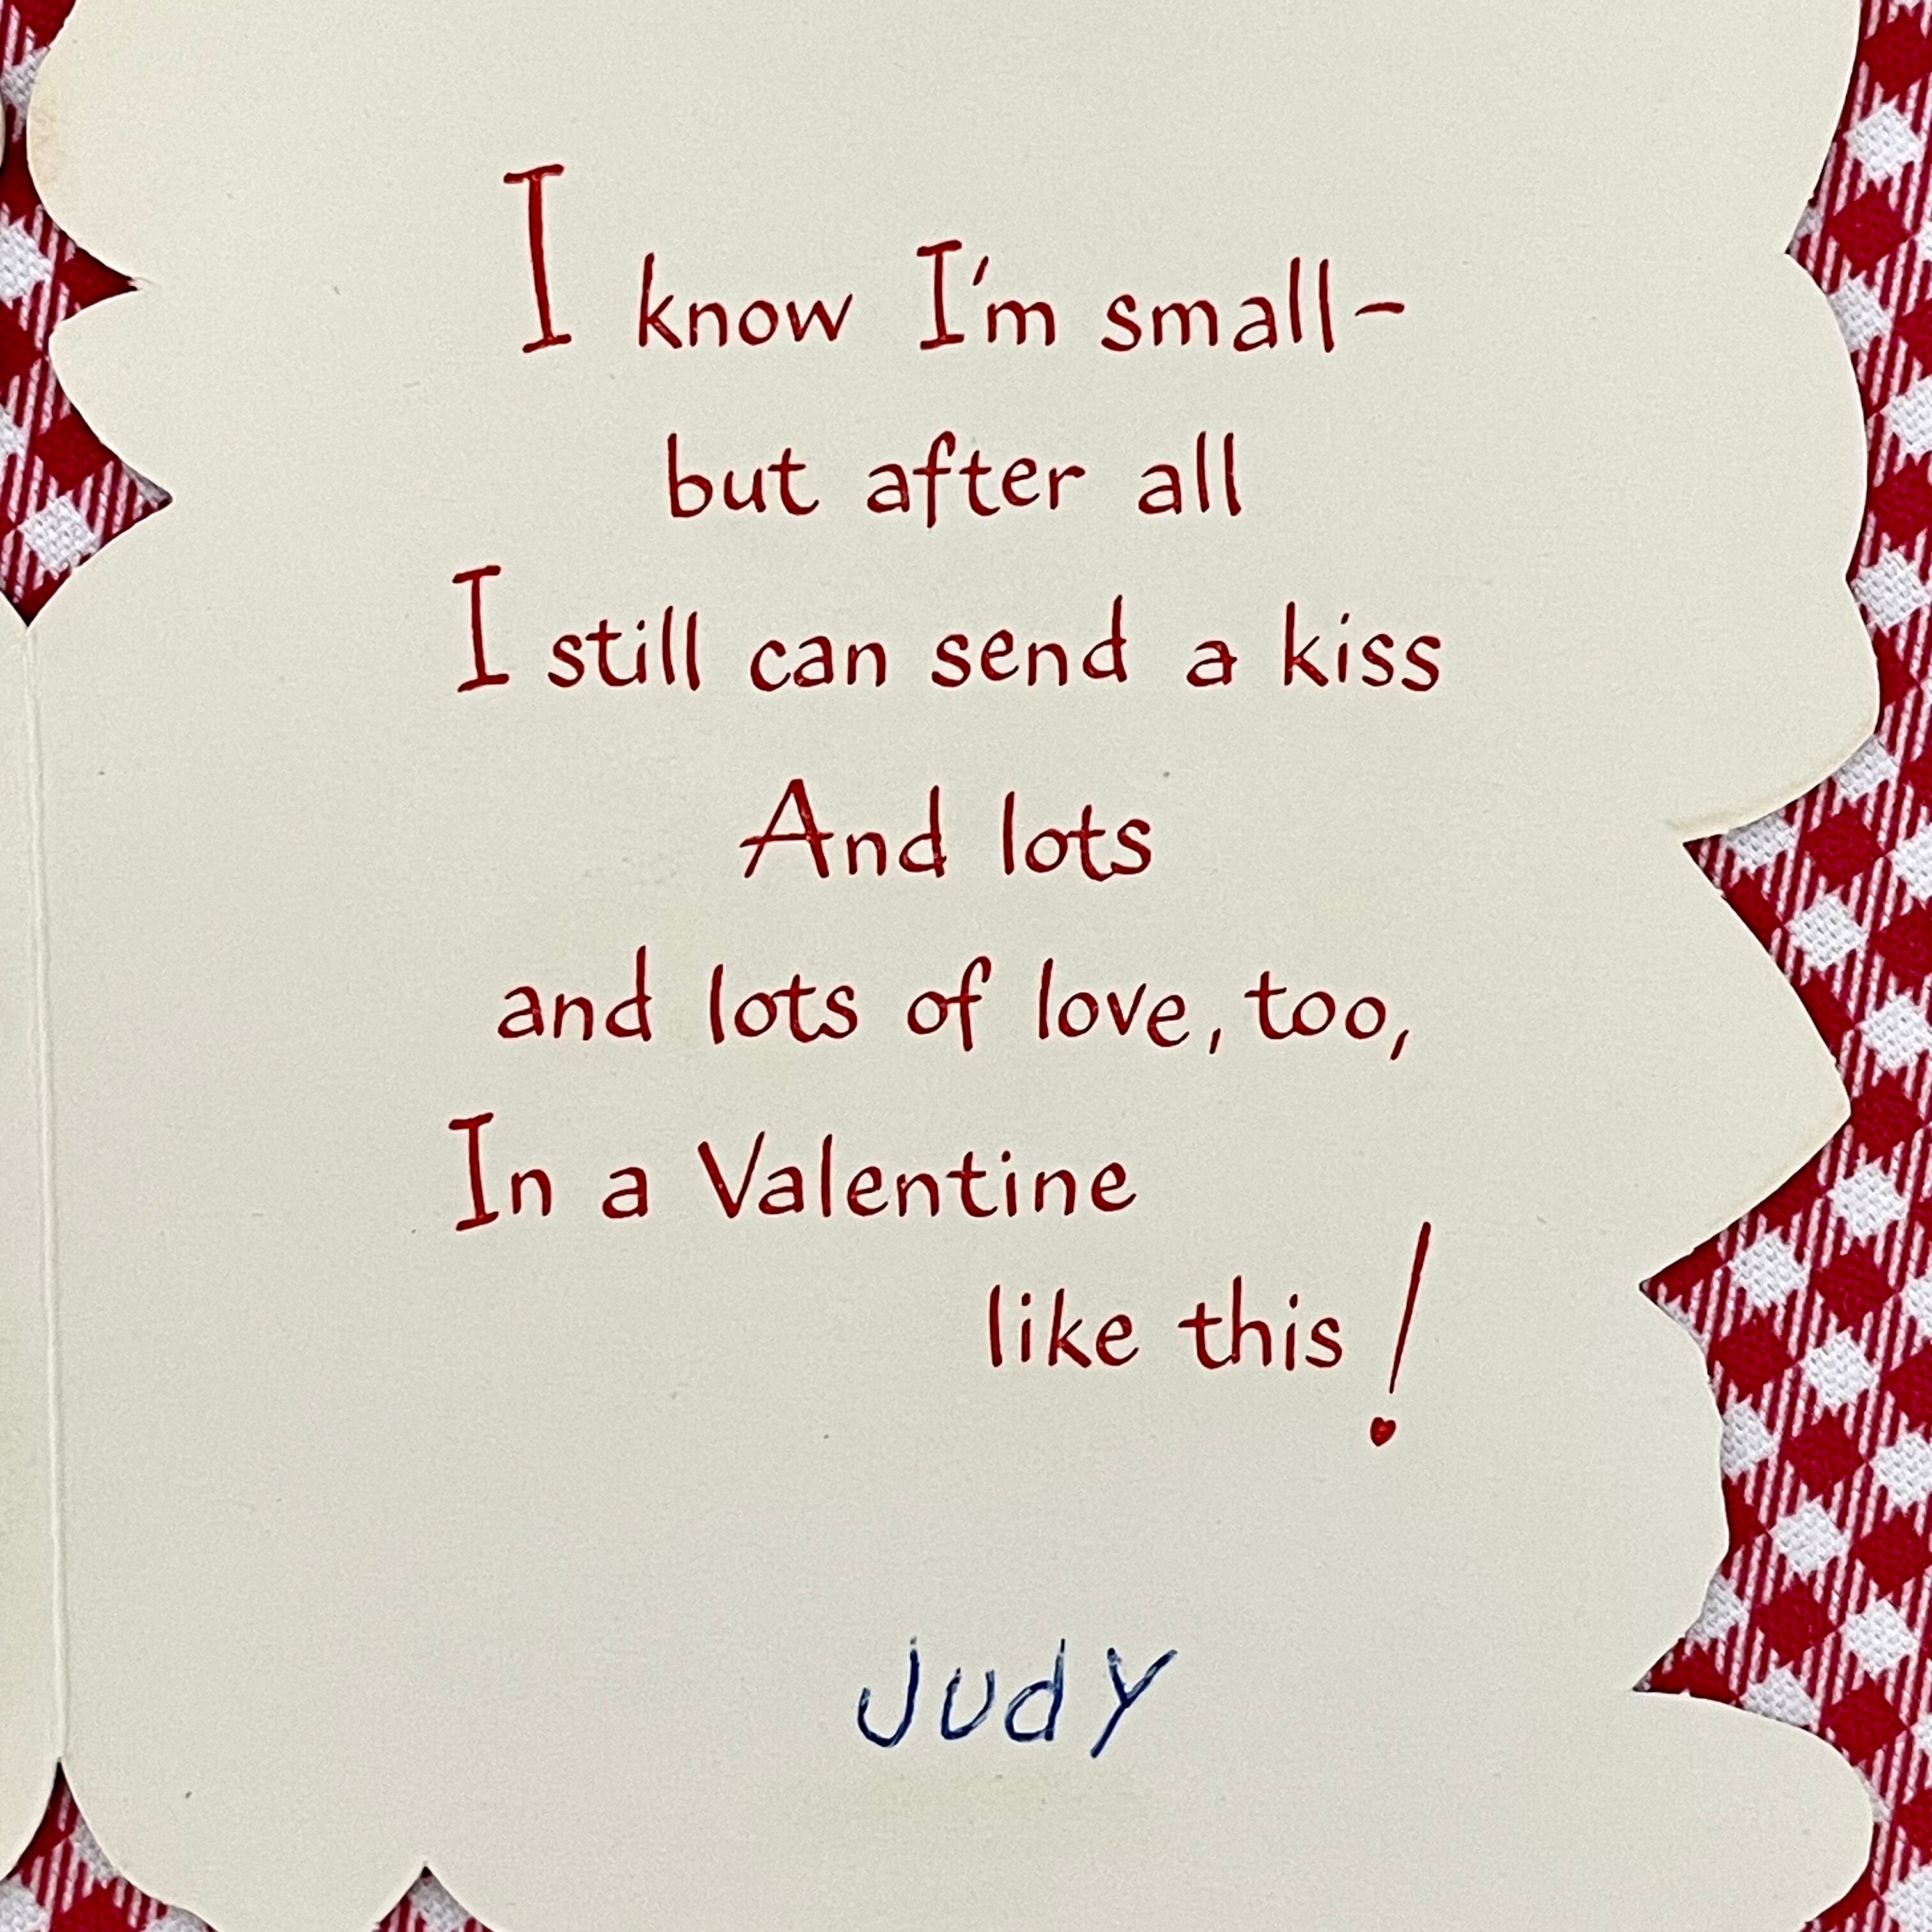 I know I'm small-
but after all
I still can send a kiss
And lots
and lots of love, too,
In a Valentine
like this!
Judy